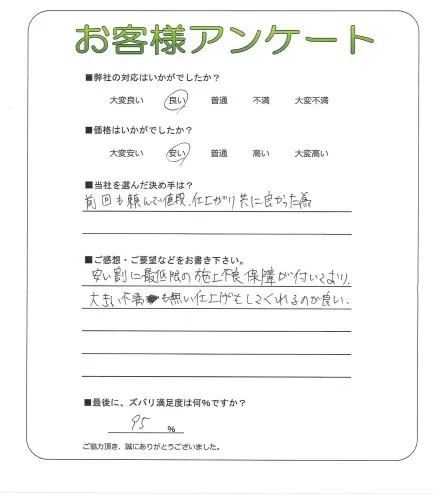 お客様アンケート
■弊社の対応はいかがでしたか?
大変良い 良い 普通 不満 大変不満
■価格はいかがでしたか?
大変安い 安い 普通 高い 大変高い
■当社を選んだ決め手は?
前回も頼んで値段、仕上がり共に良かった為
■ご感想・ご要望などをお書き下さい。
安い割に最低限の施工不良保障が付いており、
大きい不満も無い仕上げをしてくれるのが良い。
■最後に、ズバリ満足度は何%ですか?
95 %
ご協力頂き、誠にありがとうございました。